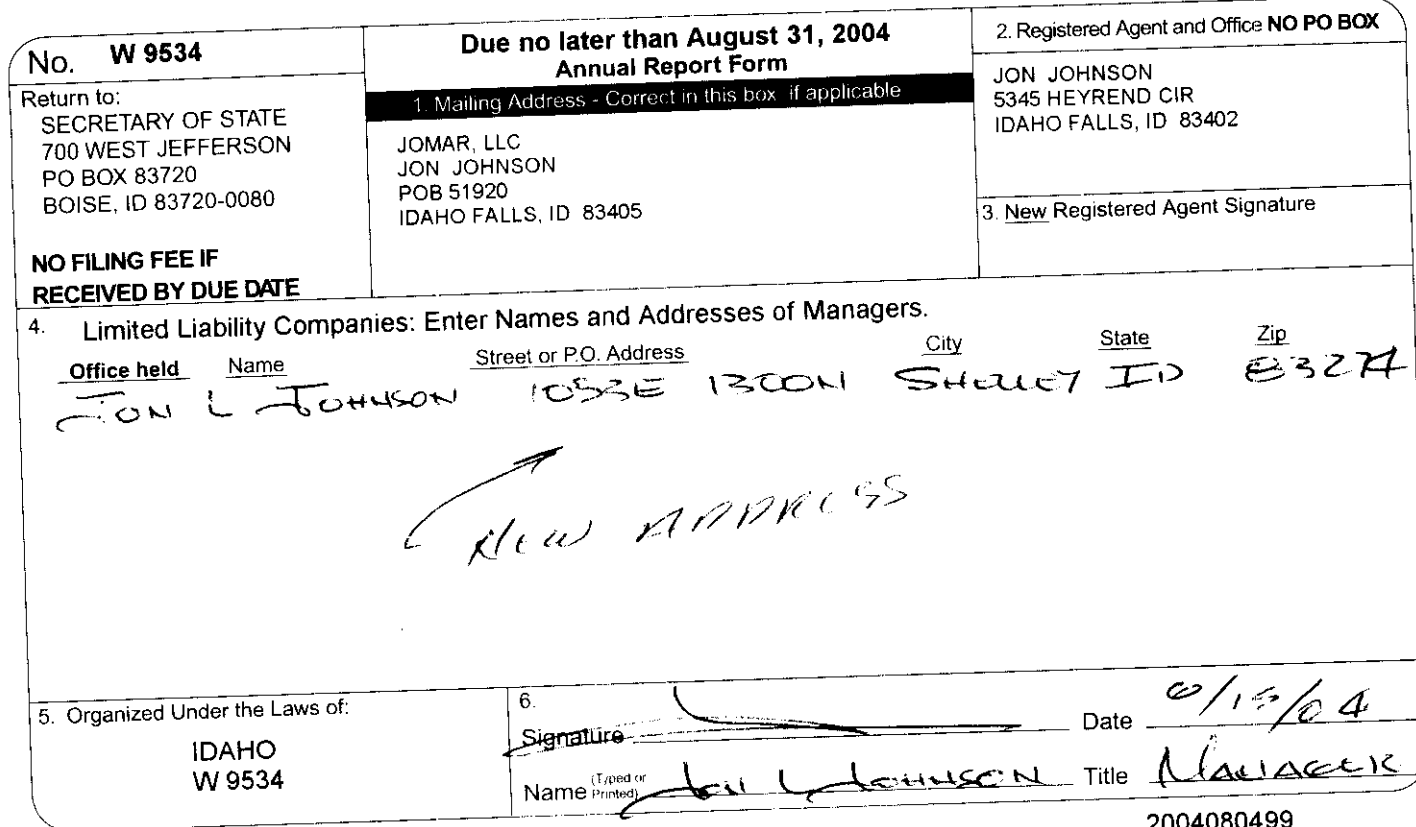 No. W 9534
Return to:
SECRETARY OF STATE
700 WEST JEFFERSON
PO BOX 83720
BOISE, ID 83720-0080
NO FILING FEE IF
RECEIVED BY DUE DATE
Due no later than August 31, 2004
Annual Report Form
1. Mailing Address - Correct in this box if applicable
JOMAR, LLC
JON JOHNSON
POB 51920
IDAHO FALLS, ID 83405
2. Registered Agent and Office NO PO BOX
JON JOHNSON
5345 HEYREND CIR
IDAHO FALLS, ID 83402
3. New Registered Agent Signature
4. Limited Liability Companies: Enter Names and Addresses of Managers.
Office held Name Street or P.O. Address City State Zip
JON L JOHNSON 1053E 1300N SHELLEY ID 83274
NEW ADDRESS
5. Organized Under the Laws of:
IDAHO
W 9534
6.
Signature
Date /04
Name (Typed or Printed) JON L JOHNSON Title MANAGER
2004080499